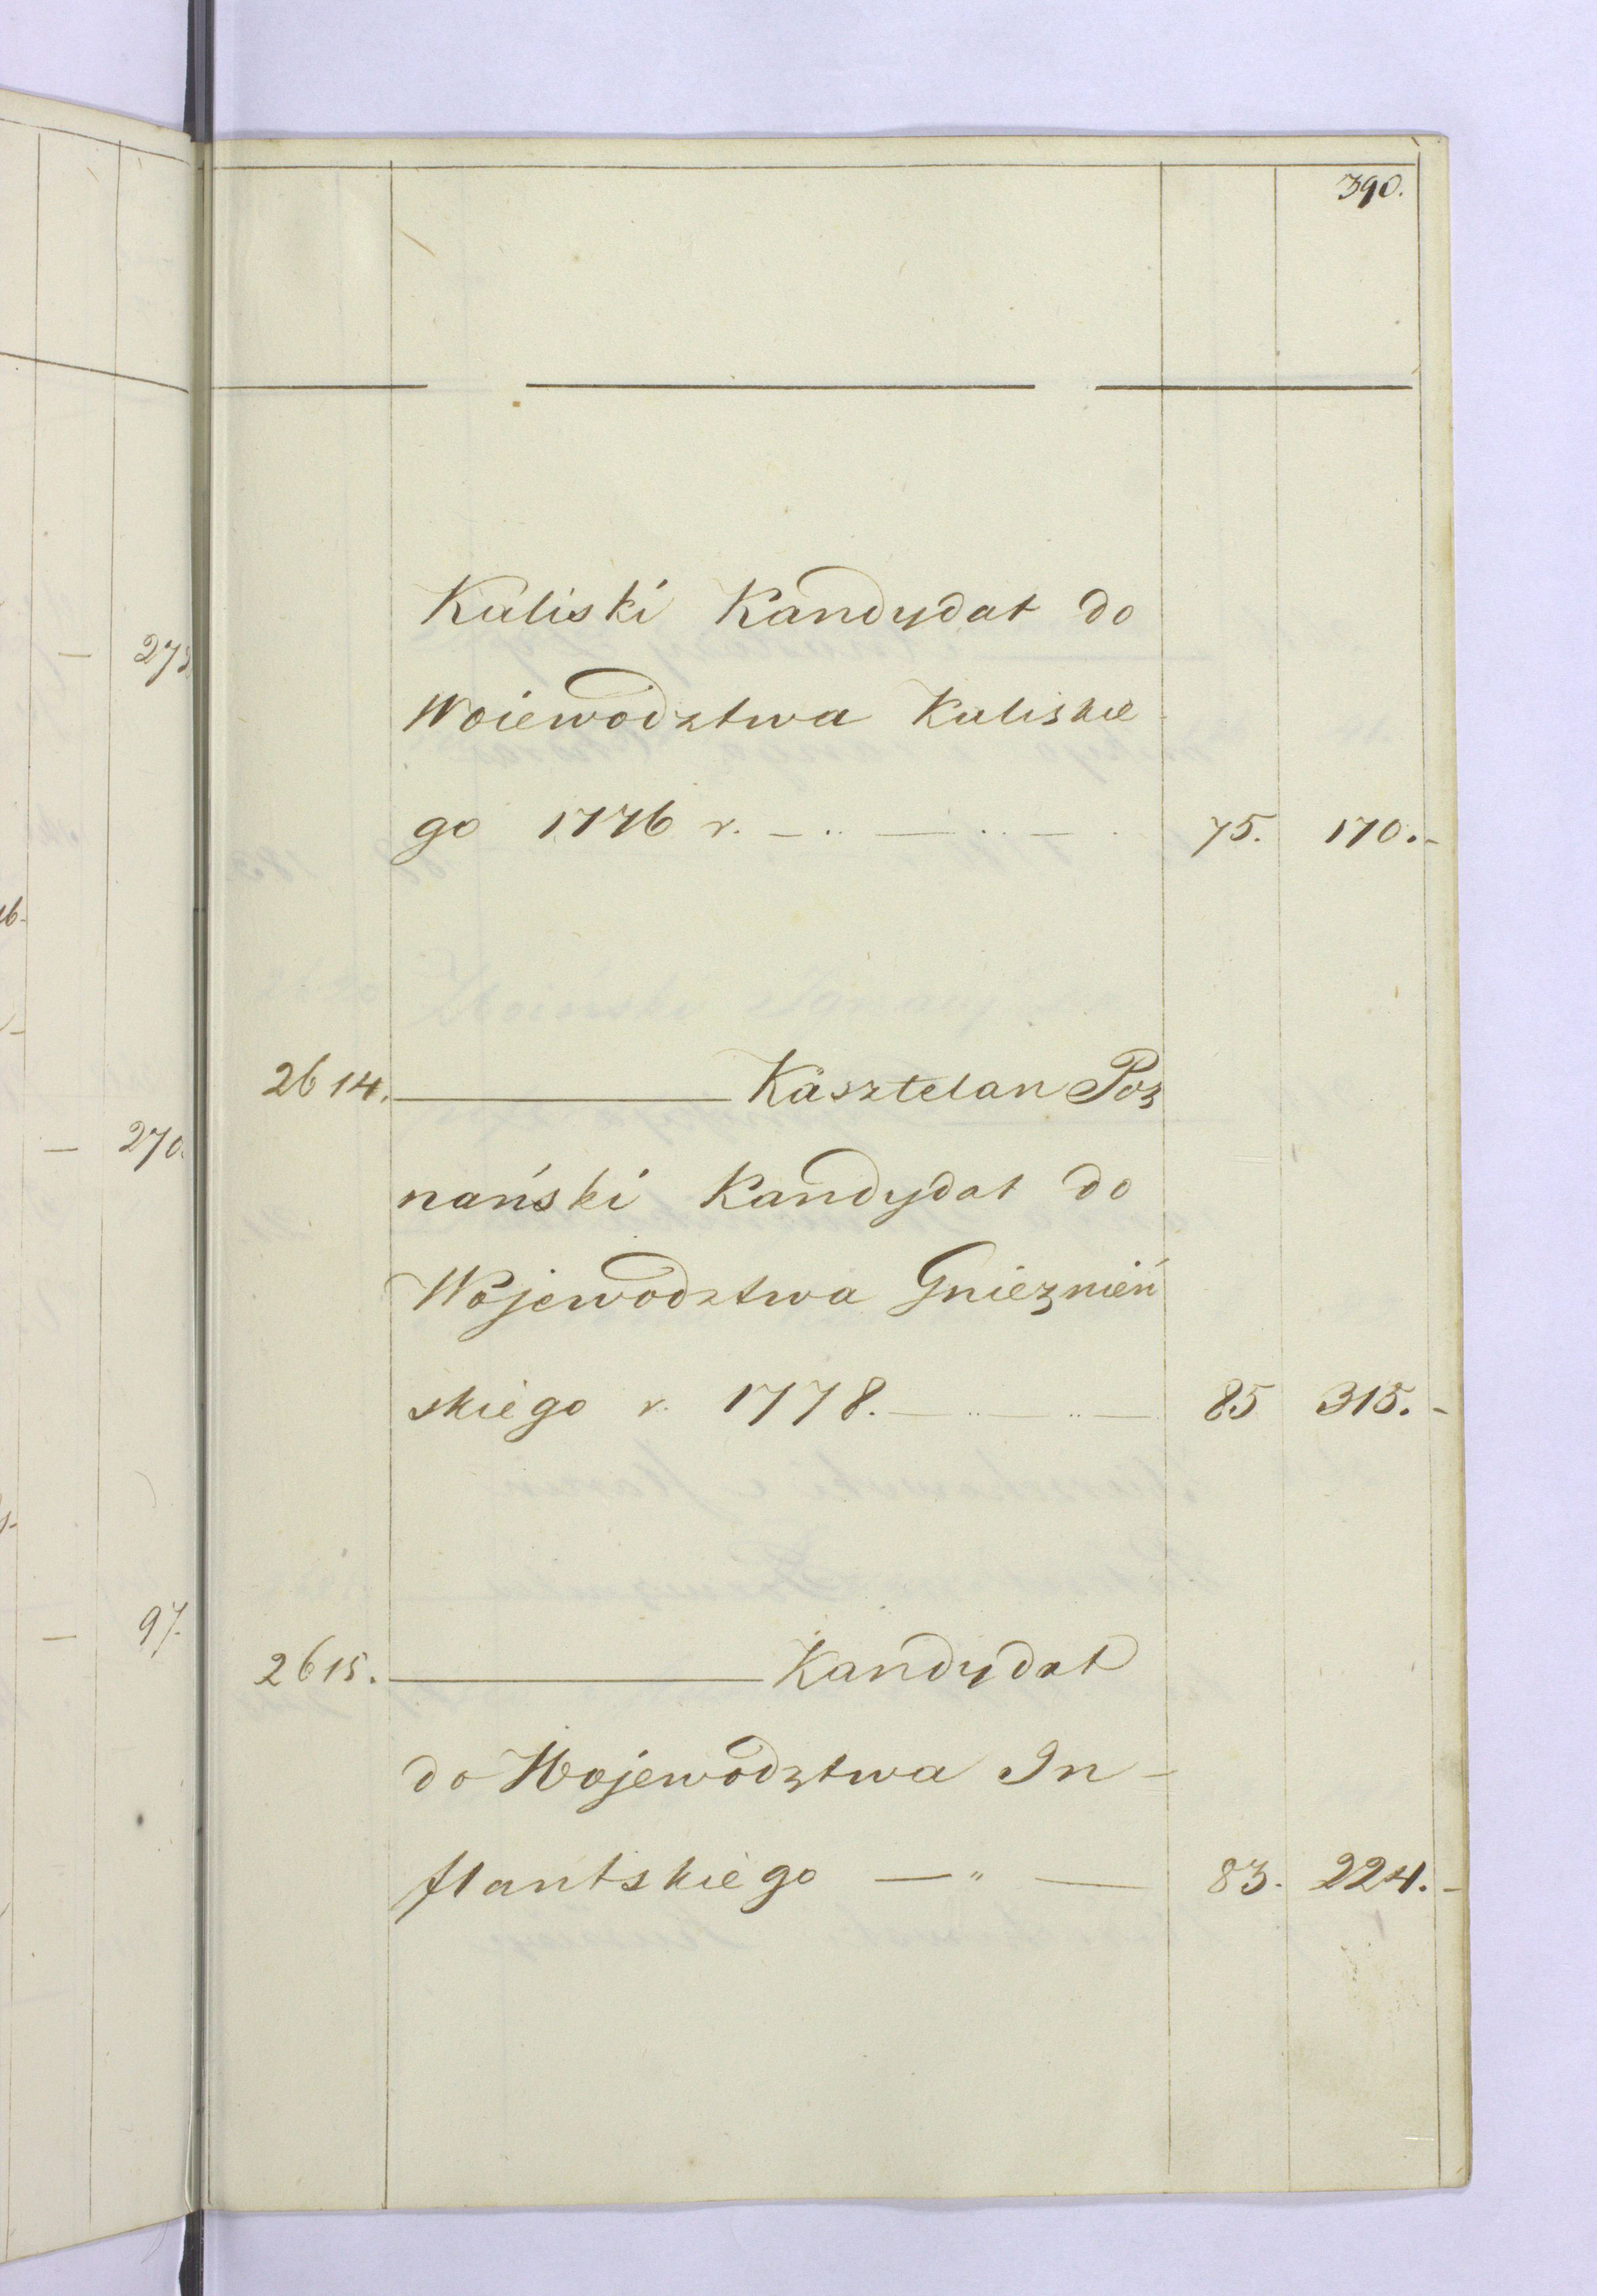 390.
Kaliski Kandydat do
Woiewodztwa Kaliskie
go 1776 r. — .. — .. — . 75. 170.-
2614. ——— Kasztelan Poz
nański Kandydat do
Wojewodztwa Gnieznień
skiego r. 1778. — .. — .. — 85 315.-
2615. ——— Kandydat
do Wojewodztwa In-
flantskiego — " — 83. 224.-
— 270.
— 97.